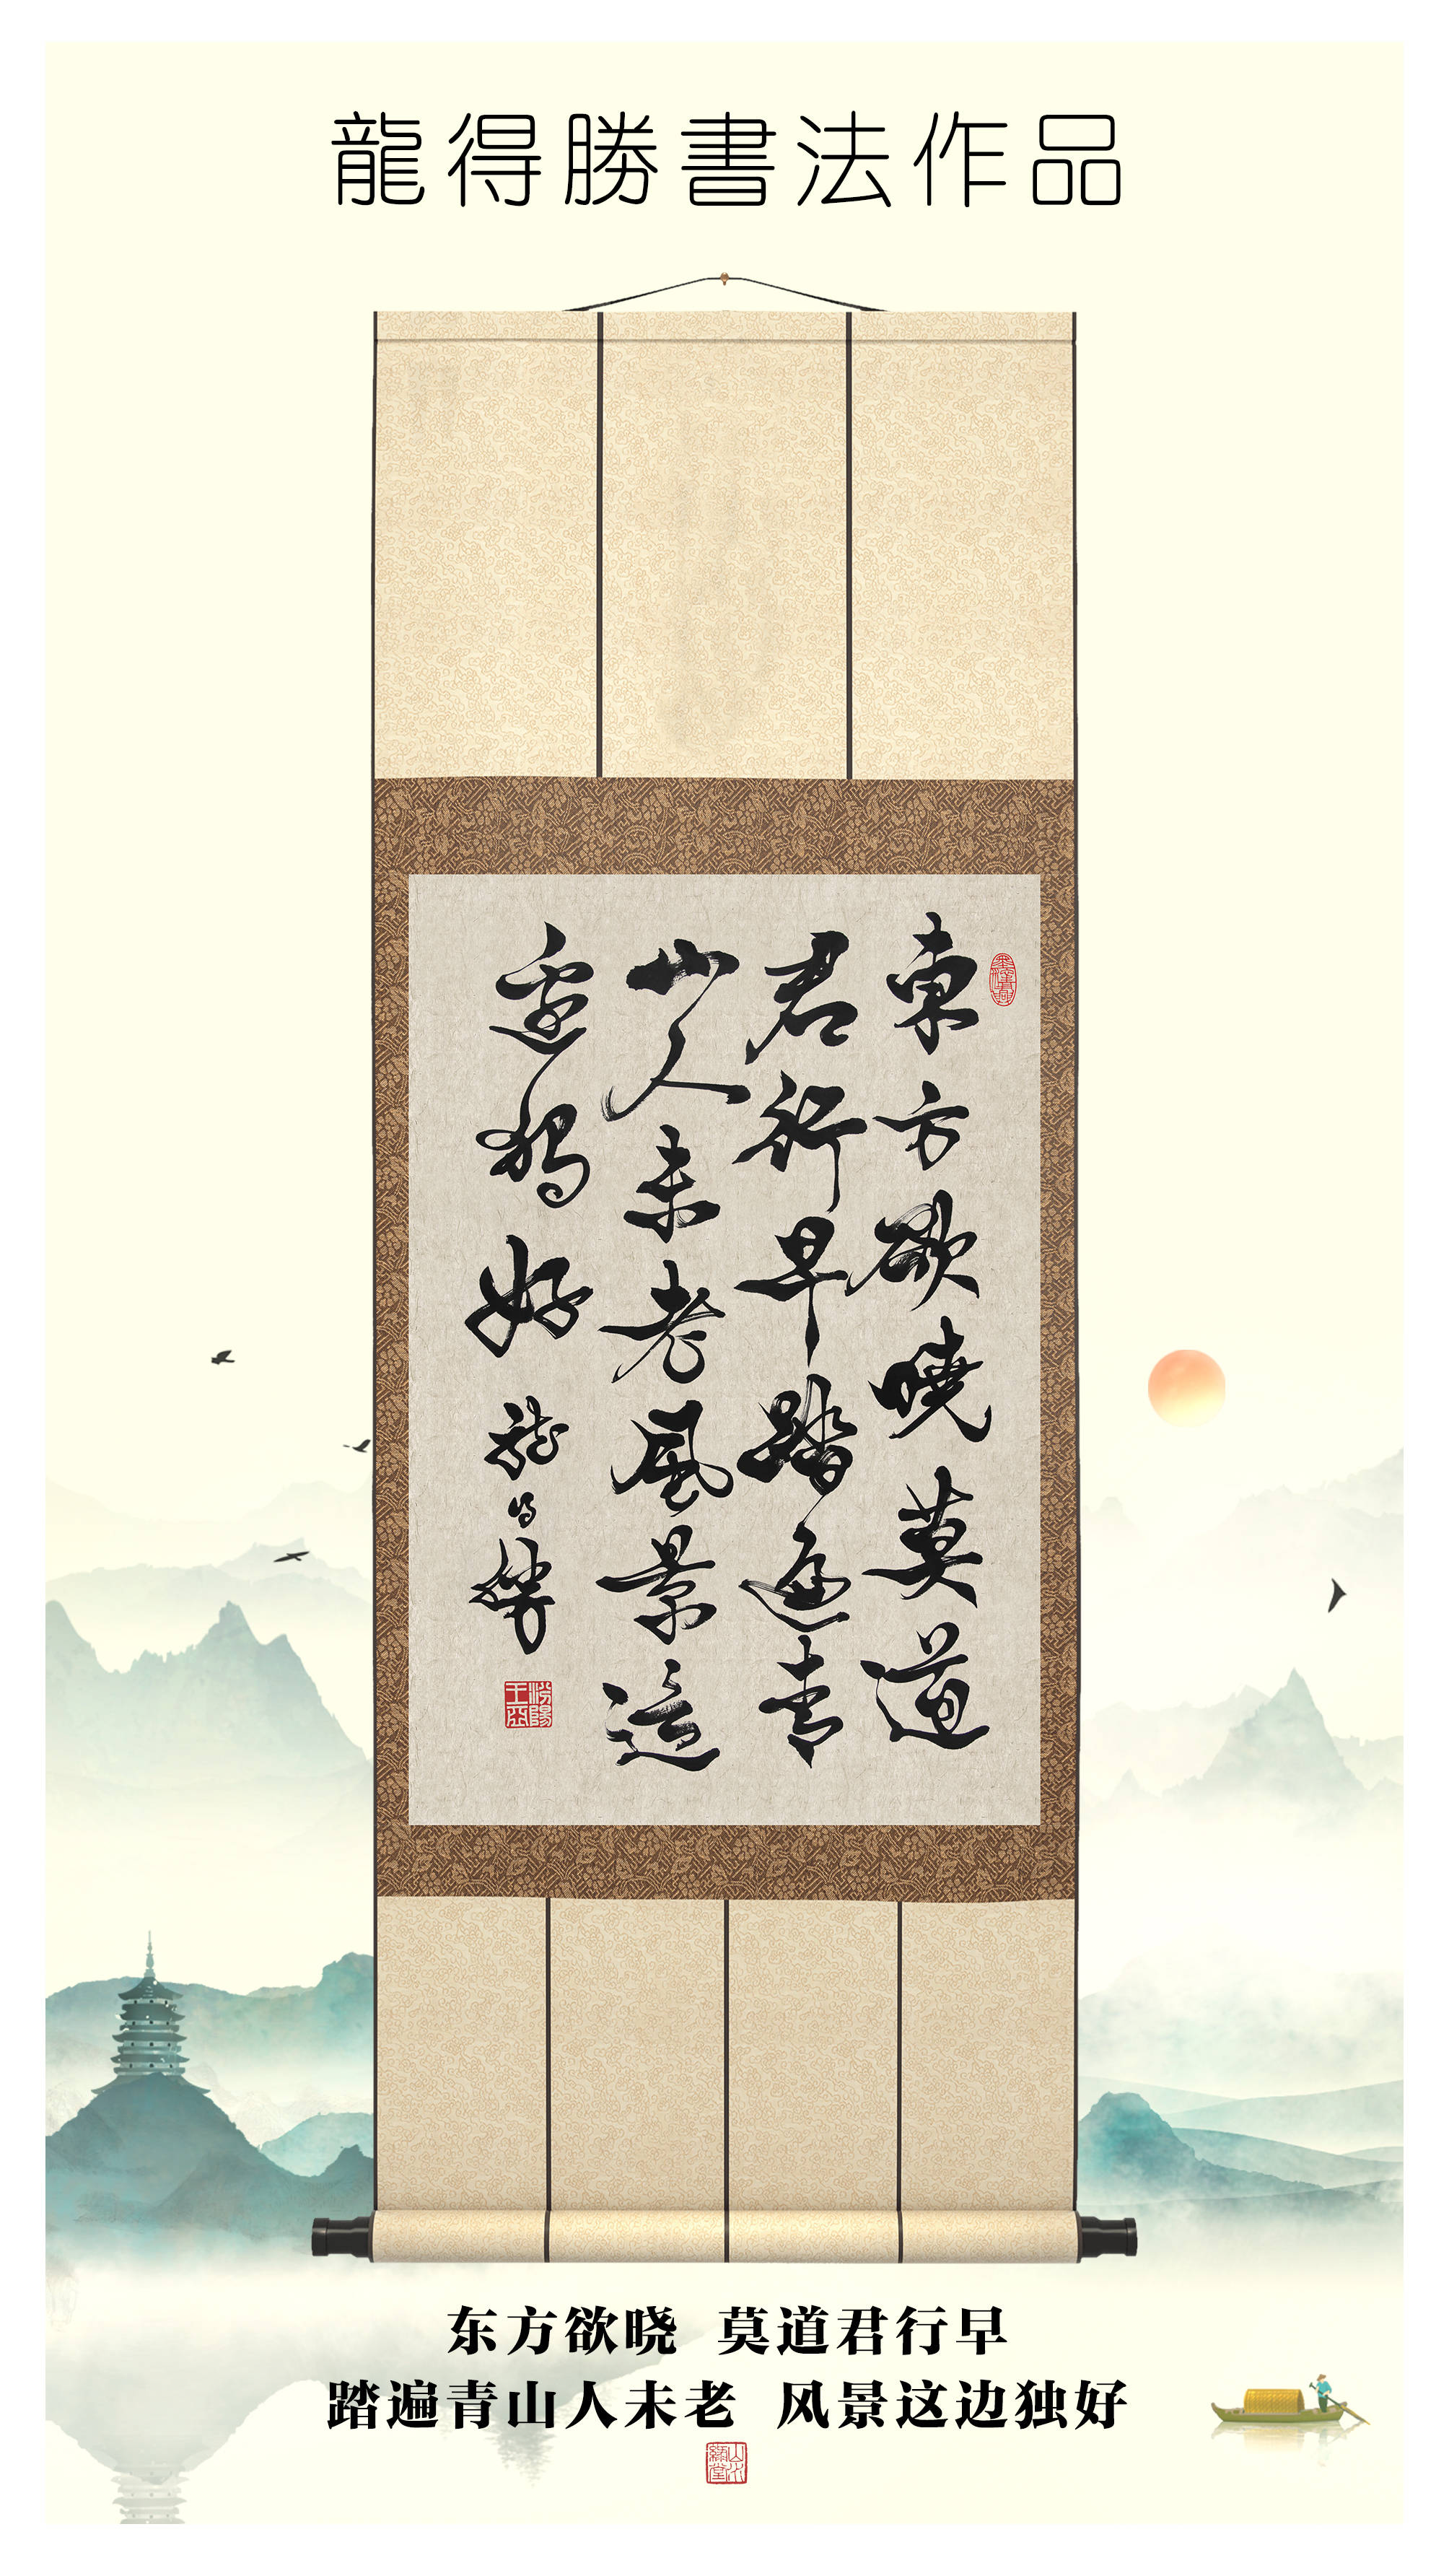 龍得勝書法作品
東方欲曉莫道
君行早踏遍青
山人未老風景這
邊獨好 龍得勝
东方欲晓 莫道君行早
踏遍青山人未老 风景这边独好